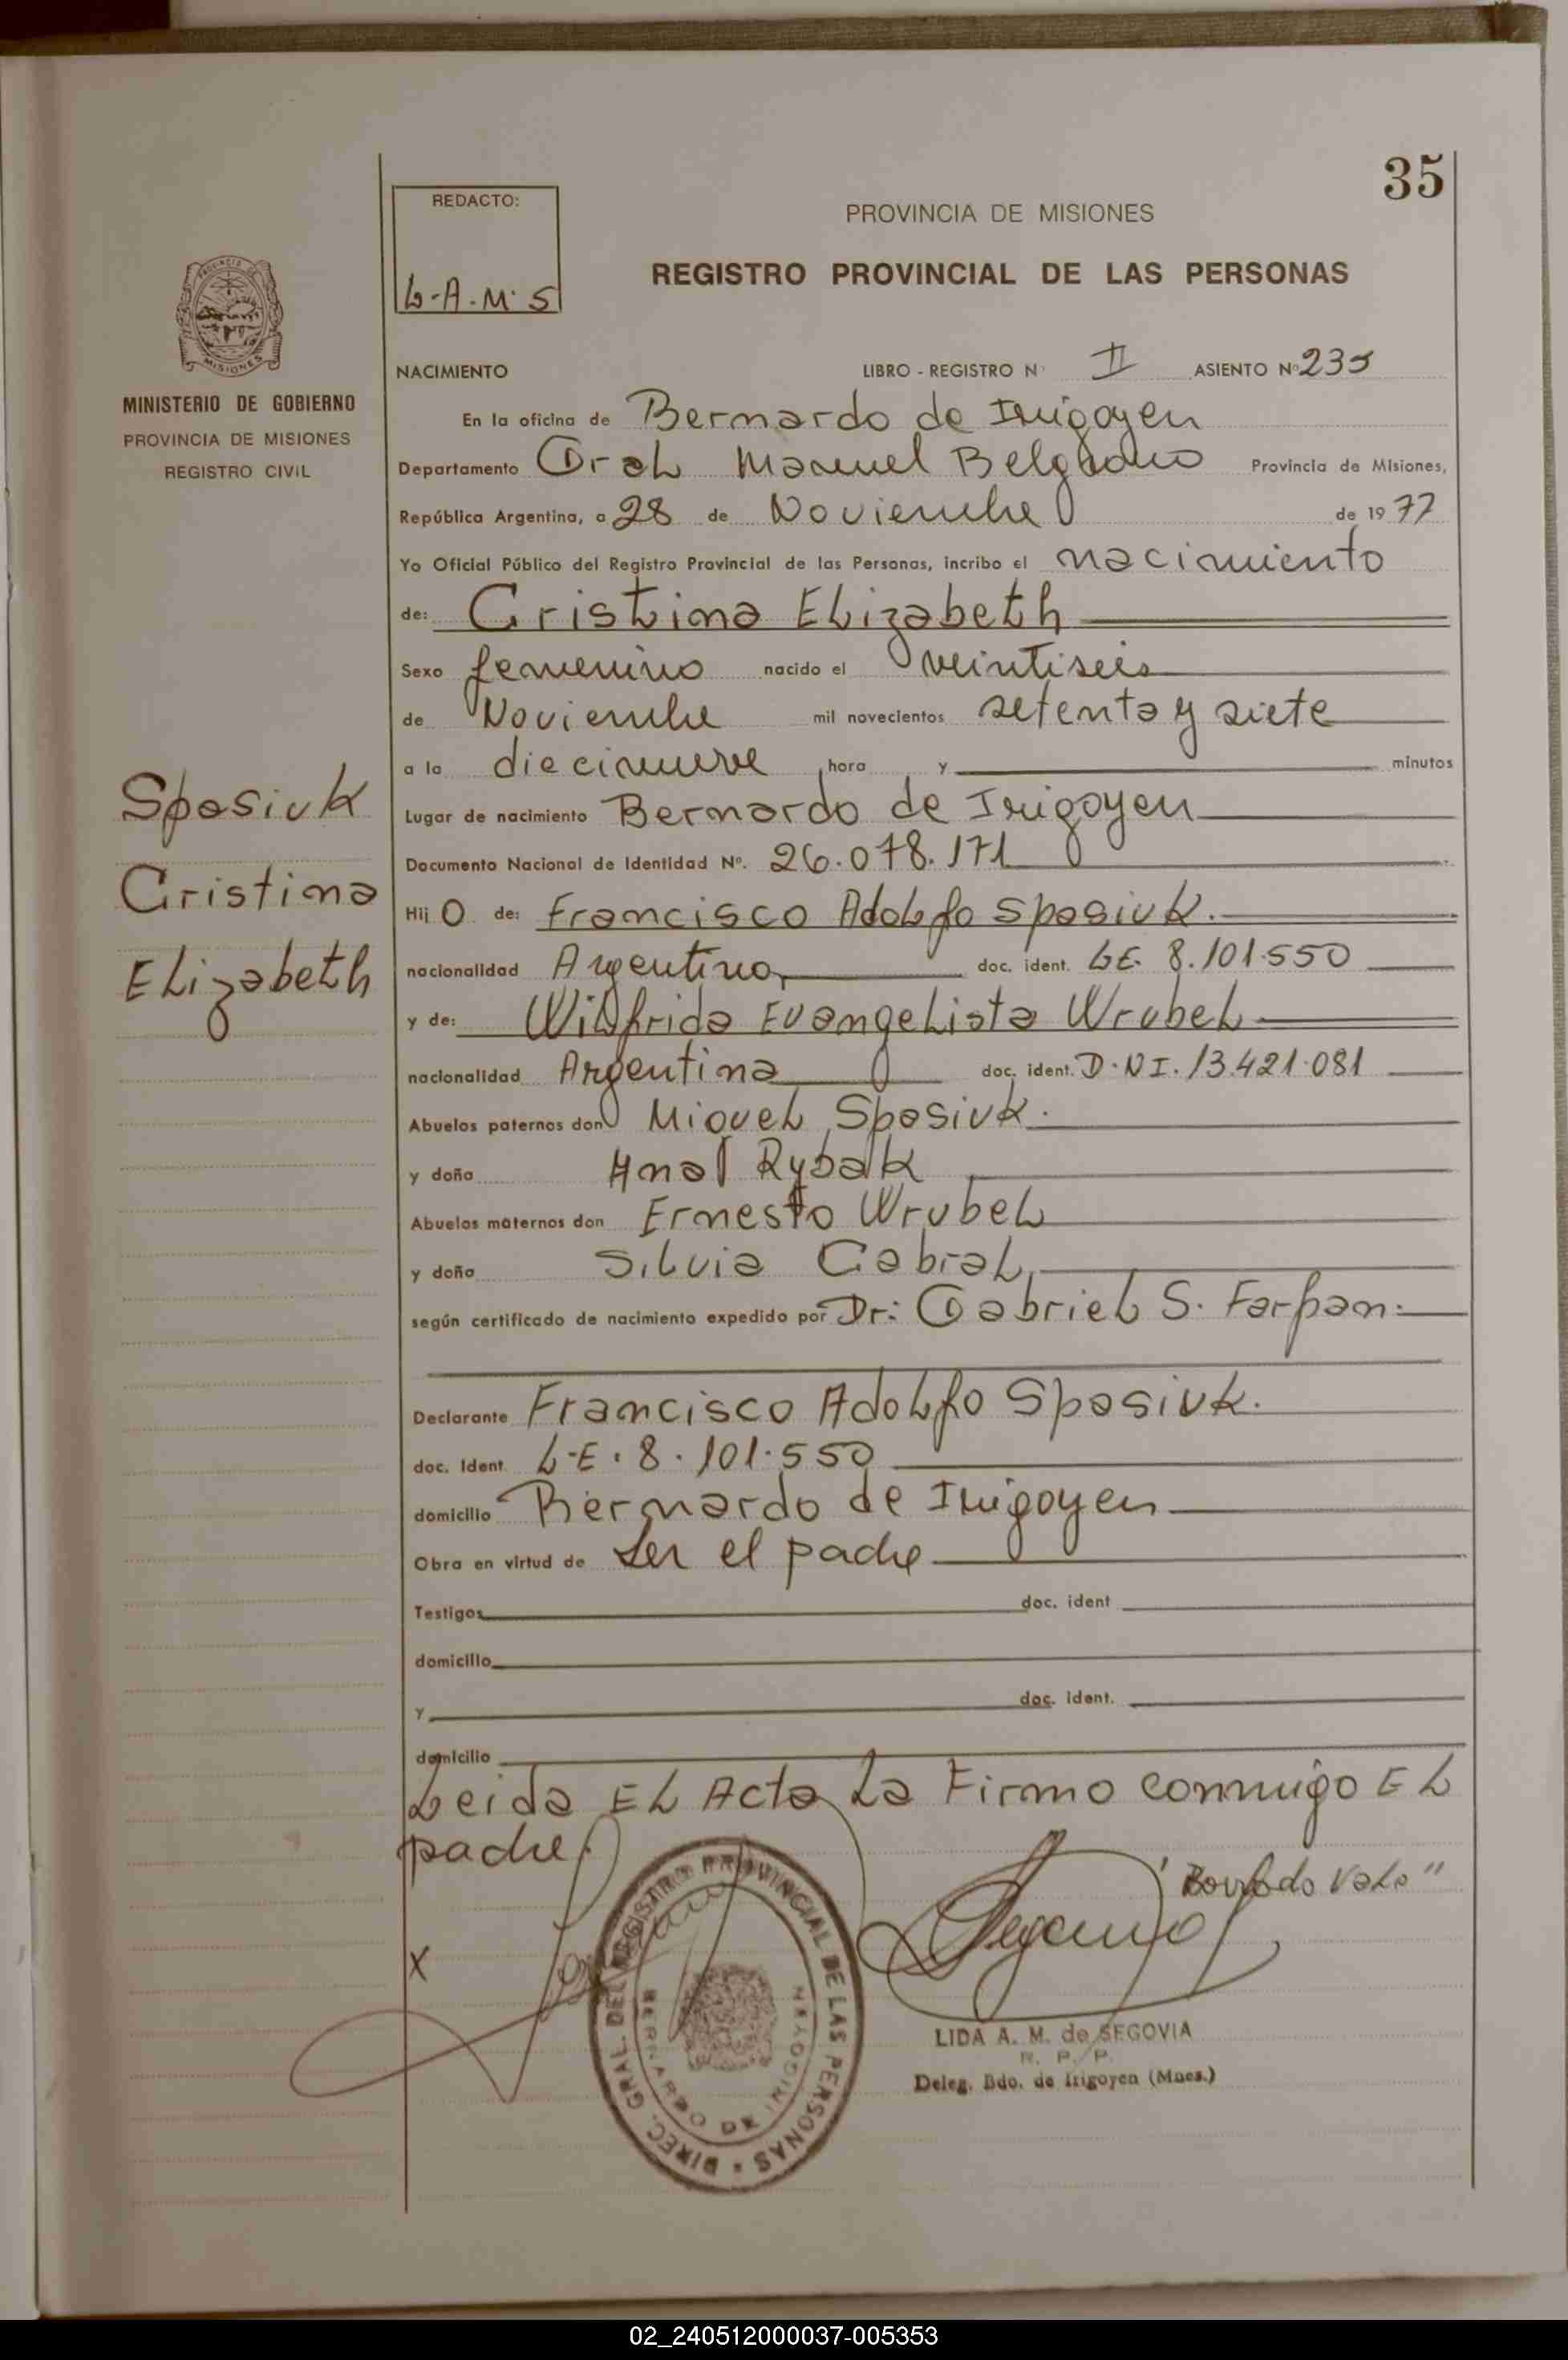 35
REDACTO:
L-A-M-S
PROVINCIA DE MISIONES
REGISTRO PROVINCIAL DE LAS PERSONAS
PROVINCIA DE
MISIONES
MINISTERIO DE GOBIERNO
PROVINCIA DE MISIONES
REGISTRO CIVIL
Sposiuk
Cristina
Elizabeth
NACIMIENTO LIBRO - REGISTRO N° II ASIENTO Nº 235
En la oficina de Bernardo de Irigoyen
Departamento Gral Manuel Belgrano Provincia de Misiones,
República Argentina, a 28 de Noviembre de 1977
Yo Oficial Público del Registro Provincial de las Personas, incribo el nacimiento
de: Cristina Elizabeth
Sexo femenino nacido el veintiseis
de Noviembre mil novecientos setenta y siete
a la diecinueve hora y minutos
Lugar de nacimiento Bernardo de Irigoyen
Documento Nacional de Identidad Nº. 26.078.171
Hij O de: Francisco Adolfo Sposiuk.
nacionalidad Argentino doc. ident. L.E. 8.101.550
y de: Wilfrida Evangelista Wrubel
nacionalidad Argentina doc. ident. D.N.I. 13.421.081
Abuelos paternos don Miguel Sposiuk.
y doña Ana Rybak
Abuelos maternos don Ernesto Wrubel
y doña Silvia Cabral
según certificado de nacimiento expedido por Dr: Gabriel S. Farpan.
Declarante Francisco Adolfo Sposiuk.
doc. Ident. L.E. 8.101.550
domicilio Bernardo de Irigoyen
Obra en virtud de ser el padre
Testigos doc. ident
domicilio
y doc. ident.
domicilio
Leida EL Acta La Firmo conmigo EL
padre
"Borrado Vale"
X
DIREC. GRAL. DEL REGISTRO PROVINCIAL DE LAS PERSONAS
BERNARDO DE IRIGOYEN
LIDA A. M. de SEGOVIA
R. P. P.
Deleg. Bdo. de Irigoyen (Mnes.)
02_240512000037-005353